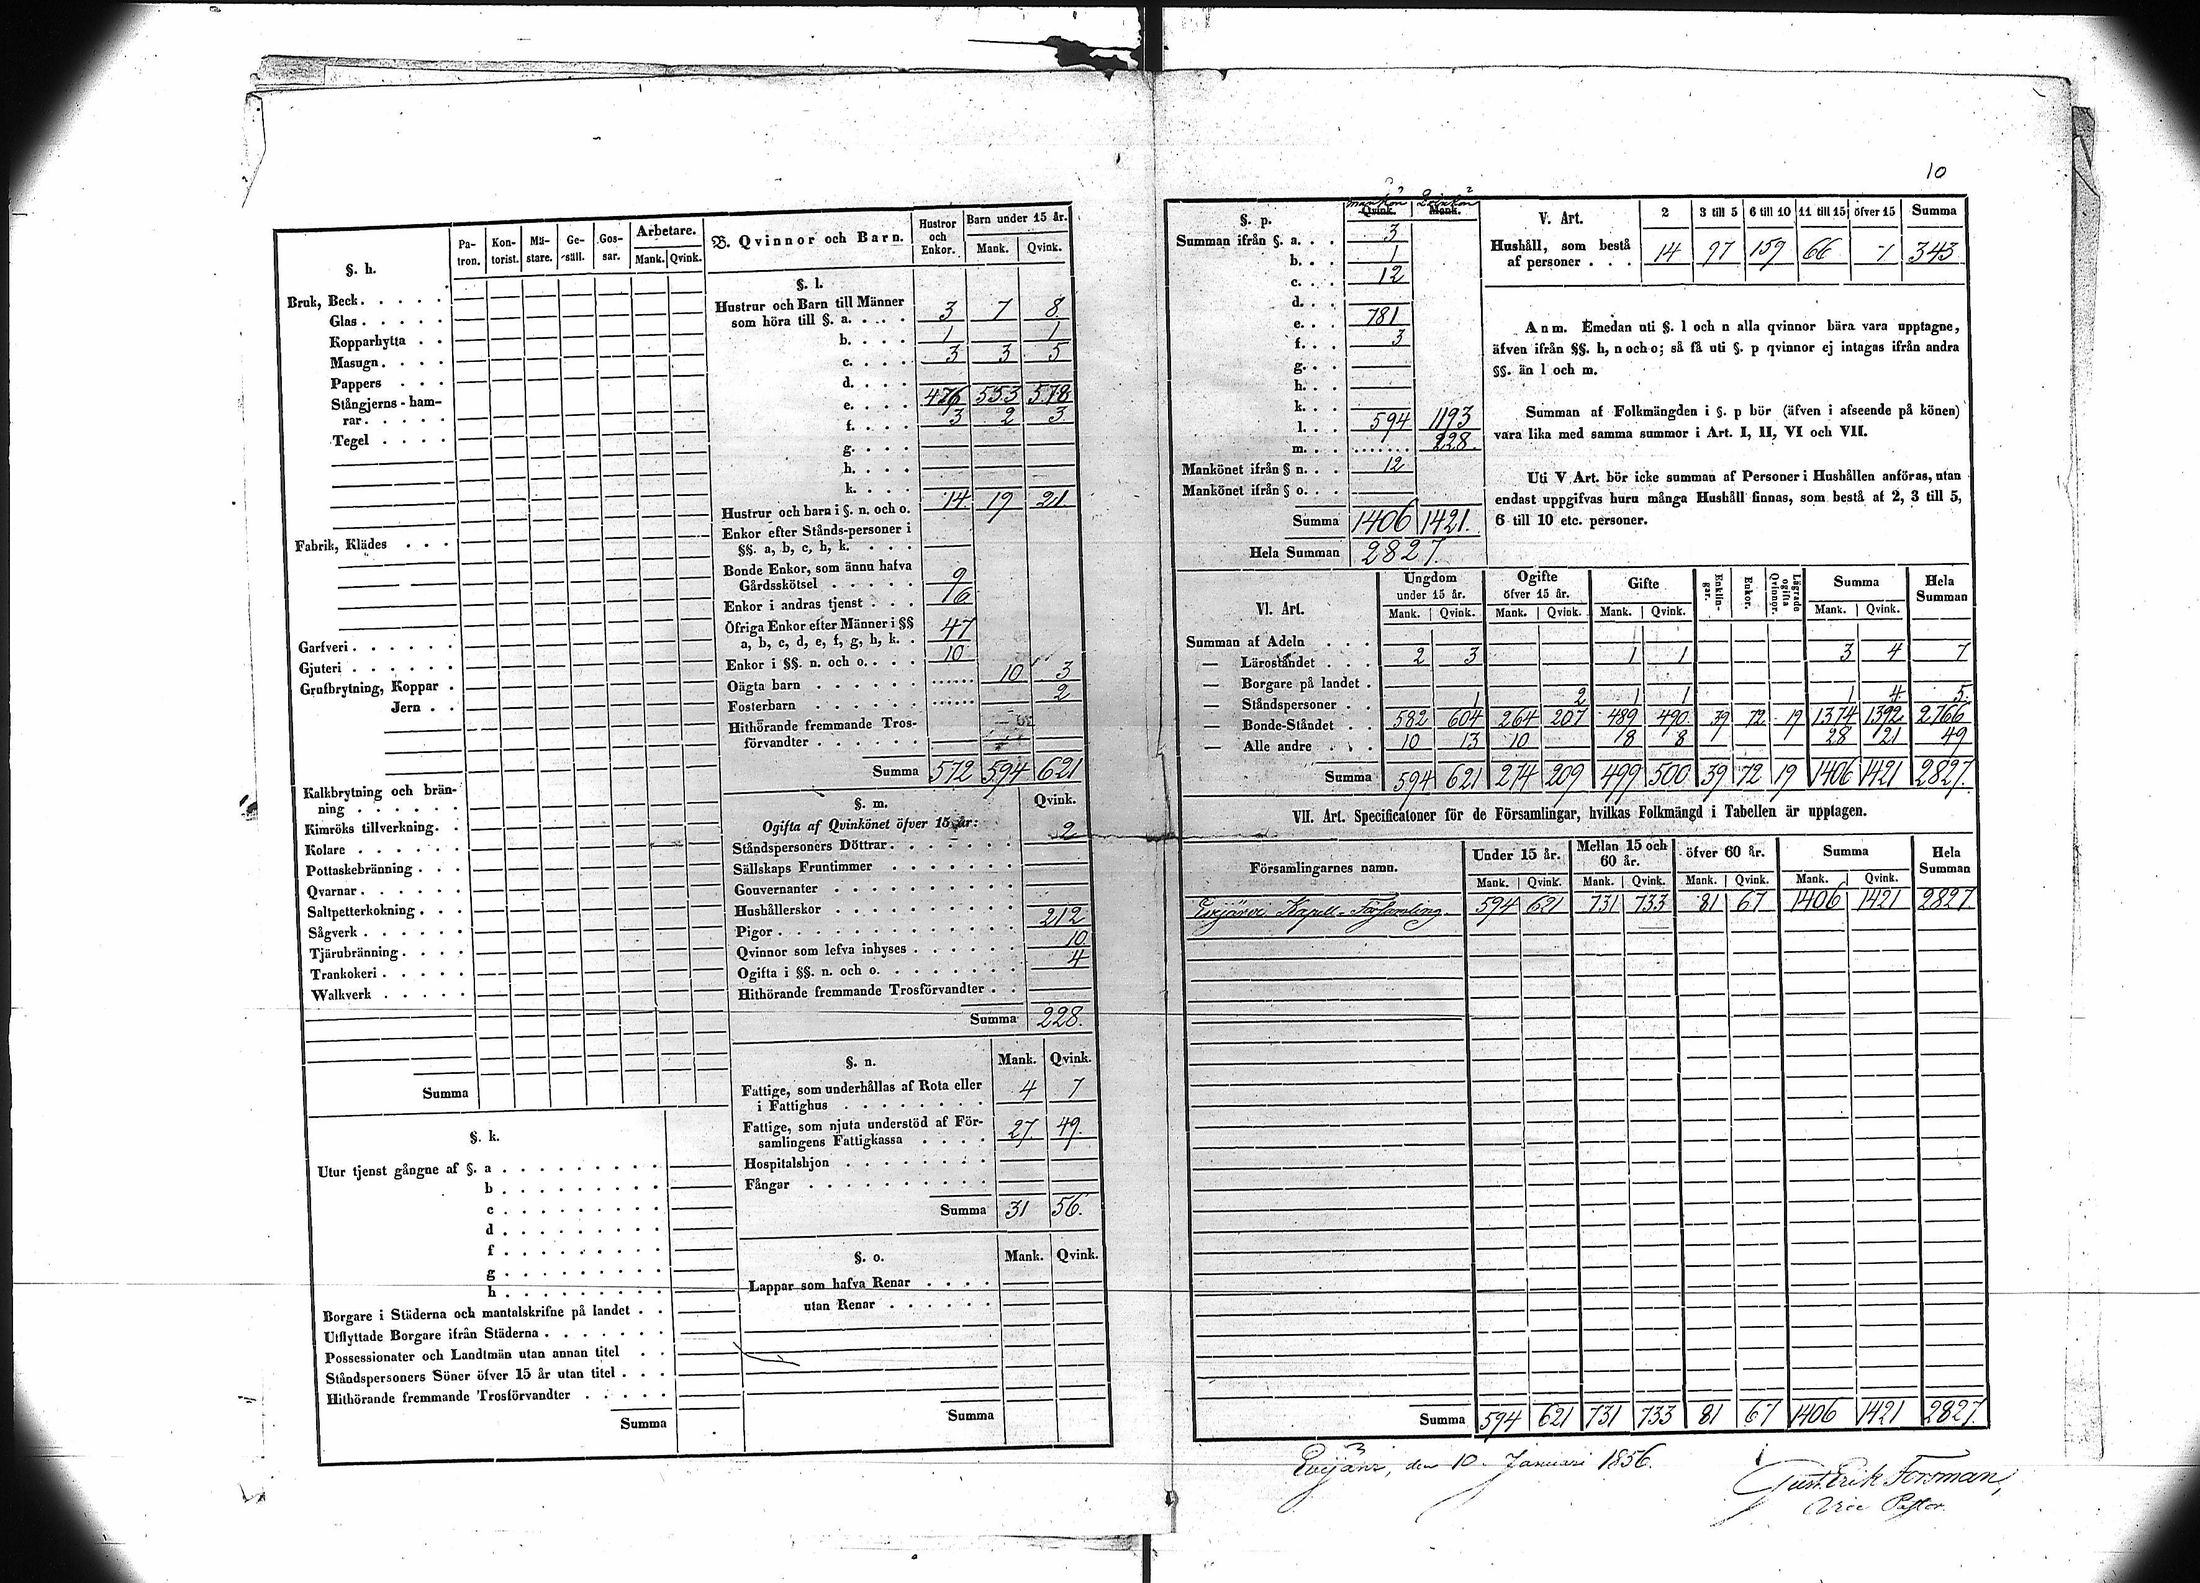 10
§. h.
Pa-tron. Kon-torist. Mä-stare. Ge-säll. Gos-sar. Arbetare. Mank. Qvink.
Bruk, Beck . . . . .
Glas . . . . .
Kopparhytta . .
Masugn . . . .
Pappers . . .
Stångjerns-ham-
rar . . . . .
Tegel . . . .
Fabrik, Klädes . . .
Garfveri . . . . . .
Gjuteri . . . . . .
Grufbrytning, Koppar .
Jern . .
Kalkbrytning och brän-
ning . . . . . .
Kimröks tillverkning . .
Kolare . . . . . .
Pottaskebränning . . .
Qvarnar . . . . . .
Saltpetterkokning . . .
Sågverk . . . . . .
Tjärubränning . . . .
Trankokeri . . . . .
Walkverk . . . . .
Summa
§. k.
Utur tjenst gångne af §. a . . . . . . . . .
b . . . . . . . . .
c . . . . . . . . .
d . . . . . . . . .
f . . . . . . . . .
g . . . . . . . . .
h . . . . . . . . .
Borgare i Städerna och mantalskrifne på landet . .
Utflyttade Borgare ifrån Städerna . . . . . . .
Possessionater och Landtmän utan annan titel . .
Ståndspersoners Söner öfver 15 år utan titel . . .
Hithörande fremmande Trosförvandter . . . . .
Summa
B. Qvinnor och Barn. Hustror och Enkor. Barn under 15 år. Mank. Qvink.
§. l.
Hustrur och Barn till Männer
som höra till §. a. . . . 3 7 8
b. . . . 1 1
c. . . . 3 3 5
d. . . .
e. . . . 476 553 578
f. . . . 3 2 3
g. . . .
h. . . .
k. . . .
Hustrur och barn i §. n. och o. 14 19 21
Enkor efter Stånds-personer i
§§. a, b, c, h, k. . . .
Bonde Enkor, som ännu hafva
Gårdsskötsel . . . . . 9
Enkor i andras tjenst . . . 6
Öfriga Enkor efter Männer i §§
a, b, c, d, e, f, g, h, k. . 47
Enkor i §§. n. och o. . . . 10
Oägta barn . . . . . . 10 3
Fosterbarn . . . . . . 2
Hithörande fremmande Tros-
förvandter . . . . . .
Summa 572 594 621
§. m. Qvink.
Ogifta af Qvinkönet öfver 15 år:
Ståndspersoners Döttrar . . . . . . . 2
Sällskaps Fruntimmer . . . . . . . .
Gouvernanter . . . . . . . . . .
Hushållerskor . . . . . . . . . .
Pigor . . . . . . . . . . . . . 212
Qvinnor som lefva inhyses . . . . . . 10
Ogifta i §§. n. och o. . . . . . . . 4
Hithörande fremmande Trosförvandter . .
Summa 228.
§. n. Mank. Qvink.
Fattige, som underhållas af Rota eller
i Fattighus . . . . . . . . 4 7
Fattige, som njuta understöd af För-
samlingens Fattigkassa . . . . 27. 49.
Hospitalshjon . . . . . . . .
Fångar . . . . . . . . . .
Summa 31 56.
§. o. Mank. Qvink.
Lappar som hafva Renar . . . .
utan Renar . . . . . .
Summa
§. p. Mankön Qvinkön
Qvink. Mank.
Summan ifrån §. a. . . 3
b. . . 1
c. . . 12
d. . .
e. . . 781
f. . . 3
g. . .
h. . .
k. . .
l. . . 594 1193
m. . . ....... 228.
Mankönet ifrån § n. . . 12
Mankönet ifrån § o. . .
Summa 1406 1421.
Hela Summan 2827.
V. Art. 2 3 till 5 6 till 10 11 till 15 öfver 15 Summa
Hushåll, som bestå
af personer . . . 14 97 159 66 7 343
Anm. Emedan uti §. l och n alla qvinnor bära vara upptagne,
äfven ifrån §§. h, n och o; så få uti §. p qvinnor ej intagas ifrån andra
§§. än l och m.
Summan af Folkmängden i §. p bör (äfven i afseende på könen)
vara lika med samma summor i Art. I, II, VI och VII.
Uti V Art. bör icke summan af Personer i Hushållen anföras, utan
endast uppgifvas huru många Hushåll finnas, som bestå af 2, 3 till 5,
6 till 10 etc. personer.
VI. Art. Ungdom under 15 år. Ogifte öfver 15 år. Gifte Enklin-gar. Enkor. Lägrade ogifta Qvinnor. Summa Hela Summan
Mank. Qvink. Mank. Qvink. Mank. Qvink. Mank. Qvink.
Summan af Adeln . . .
— Läroståndet . . . 2 3 1 1 3 4 7
— Borgare på landet .
— Ståndspersoner . . 1 2 1 1 1 4 5
— Bonde-Ståndet . . 582 604 264 207 489 490 39 72 19 1374 1392 2766
— Alle andre . . . 10 13 10 8 8 28 21 49
Summa 594 621 274 209 499 500 39 72 19 1406 1421 2827.
VII. Art. Specificatoner för de Församlingar, hvilkas Folkmängd i Tabellen är upptagen.
Församlingarnes namn. Under 15 år. Mellan 15 och 60 år. öfver 60 år. Summa Hela Summan
Mank. Qvink. Mank. Qvink. Mank. Qvink. Mank. Qvink.
Evijärvi Kapell-Församling. 594 621 731 733 81 67 1406 1421 2827
Summa 594 621 731 733 81 67 1406 1421 2827.
Evijärvi, den 10 Januari 1856.
Gust. Erik Forsman,
Vice Pastor.